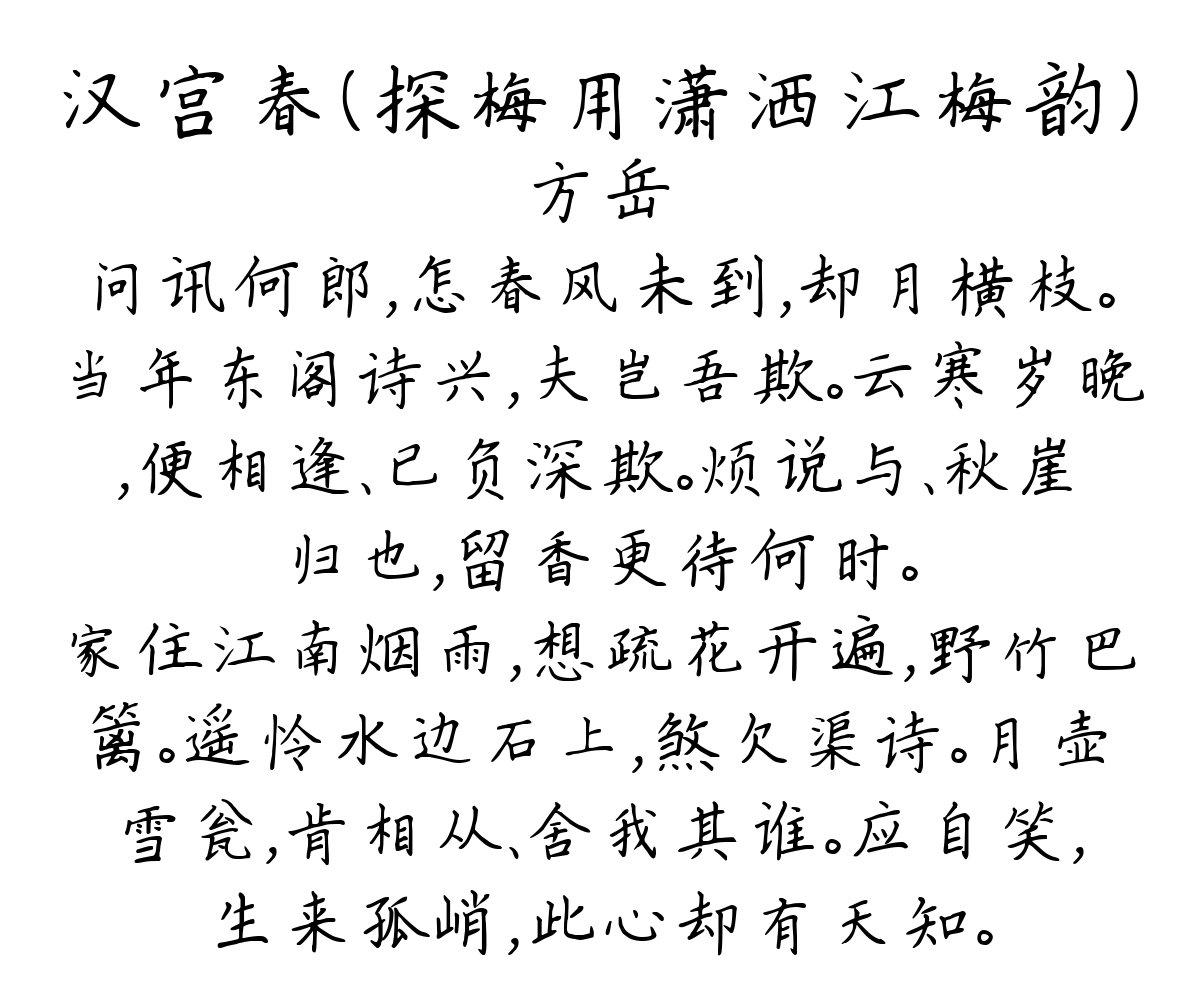 汉宫春(探梅用潇洒江梅韵)
方岳
问讯何郎,怎春风未到,却月横枝。
当年东阁诗兴,夫岂吾欺。云寒岁晚
,便相逢、已负深欺。烦说与、秋崖
归也,留香更待何时。
家住江南烟雨,想疏花开遍,野竹巴
篱。遥怜水边石上,煞欠渠诗。月壶
雪瓮,肯相从、舍我其谁。应自笑,
生来孤峭,此心却有天知。